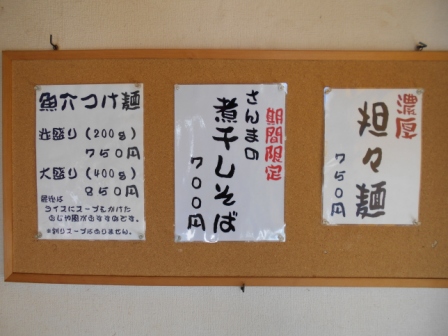 魚介つけ麺
並盛り(200g)
750円
大盛り(400g)
850円
最後は
ライスにスープをかけた
おじや風がおすすめです。
*割りスープはありません。
期間限定
さんまの
煮干しそば
700円
濃厚
担々麺
750円